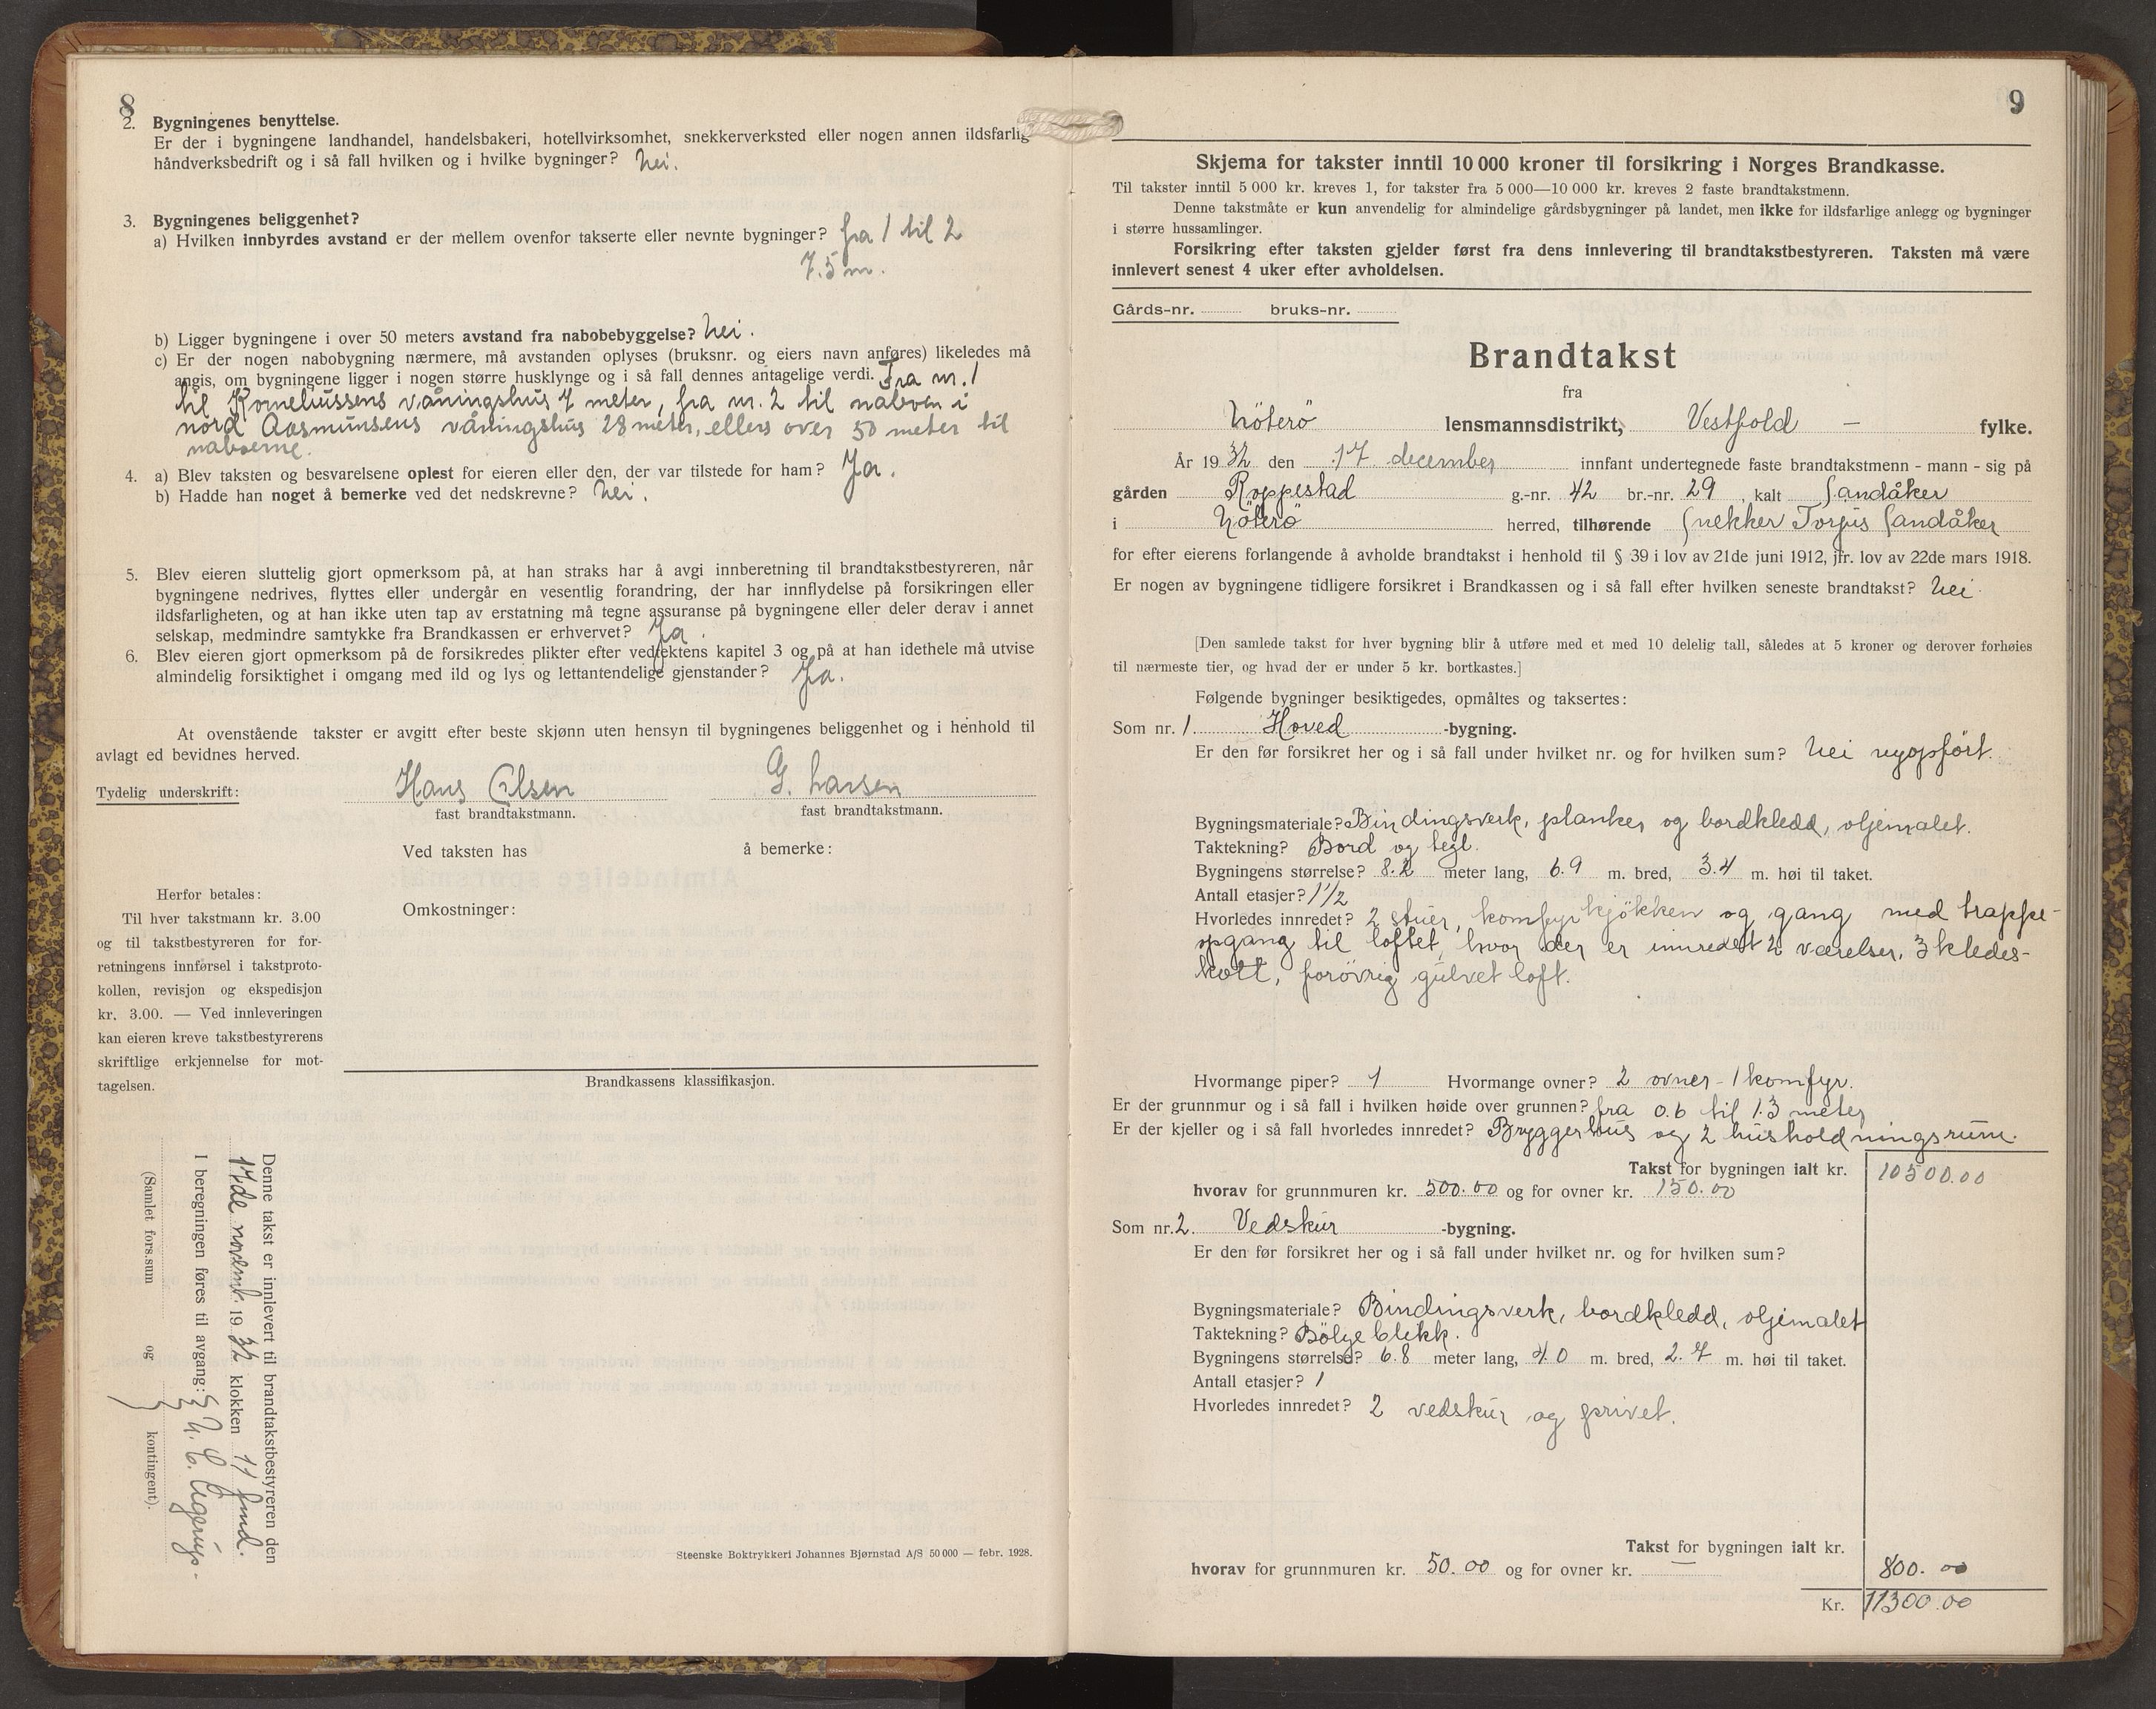 8
2. Bygningenes benyttelse.
Er der i bygningene landhandel, handelsbakeri, hotellvirksomhet, snekkerverksted eller nogen annen ildsfarlig
håndverksbedrift og i så fall hvilken og i hvilke bygninger? Nei.
3. Bygningenes beliggenhet?
a) Hvilken innbyrdes avstand er der mellem ovenfor takserte eller nevnte bygninger? fra 1 til 2
7.5 m.
b) Ligger bygningene i over 50 meters avstand fra nabobebyggelse? Nei.
c) Er der nogen nabobygning nærmere, må avstanden oplyses (bruksnr. og eiers navn anføres) likeledes må
angis, om bygningene ligger i nogen større husklynge og i så fall dennes antagelige verdi. Fra nr. 1
til Korneliussens våningshus 7 meter, fra nr. 2 til naboen i
nord Aasmunsens våningshus 28 meter, ellers over 50 meter til
naboerne.
4. a) Blev taksten og besvarelsene oplest for eieren eller den, der var tilstede for ham? Ja.
b) Hadde han noget å bemerke ved det nedskrevne? Nei.
5. Blev eieren sluttelig gjort opmerksom på, at han straks har å avgi innberetning til brandtakstbestyreren, når
bygningene nedrives, flyttes eller undergår en vesentlig forandring, der har innflydelse på forsikringen eller
ildsfarligheten, og at han ikke uten tap av erstatning må tegne assuranse på bygningene eller deler derav i annet
selskap, medmindre samtykke fra Brandkassen er erhvervet? Ja.
6. Blev eieren gjort opmerksom på de forsikredes plikter efter vedtektens kapitel 3 og på at han idethele må utvise
almindelig forsiktighet i omgang med ild og lys og lettantendelige gjenstander? Ja.
At ovenstående takster er avgitt efter beste skjønn uten hensyn til bygningenes beliggenhet og i henhold til
avlagt ed bevidnes herved.
Tydelig underskrift: Hans Olsen G. Larsen
fast brandtakstmann. fast brandtakstmann.
Ved taksten has å bemerke:
Omkostninger:
Herfor betales:
Til hver takstmann kr. 3.00
og til takstbestyreren for for-
retningens innførsel i takstproto-
kollen, revisjon og ekspedisjon
kr. 3.00. — Ved innleveringen
kan eieren kreve takstbestyrerens
skriftlige erkjennelse for mot-
tagelsen.
Brandkassens klassifikasjon.
Denne takst er innlevert til brandtakstbestyreren den
17de novemb. 1932 klokken 11 fmd.
I beregningen føres til avgang:
(Samlet fors.sum og kontingent).
Steenske Boktrykkeri Johannes Bjørnstad A/S 50 000 — febr. 1928.
9
Skjema for takster inntil 10 000 kroner til forsikring i Norges Brandkasse.
Til takster inntil 5 000 kr. kreves 1, for takster fra 5 000—10 000 kr. kreves 2 faste brandtakstmenn.
Denne takstmåte er kun anvendelig for almindelige gårdsbygninger på landet, men ikke for ildsfarlige anlegg og bygninger
i større hussamlinger.
Forsikring efter taksten gjelder først fra dens innlevering til brandtakstbestyreren. Taksten må være
innlevert senest 4 uker efter avholdelsen.
Gårds-nr. bruks-nr.
Brandtakst
fra
Nöterö lensmannsdistrikt, Vestfold — fylke.
År 1932 den 17 december innfant undertegnede faste brandtakstmenn - mann - sig på
gården Roppestad g.-nr. 42 br.-nr. 29, kalt Sandåker
i Nöterö herred, tilhørende Snekker Torjus Sandåker
for efter eierens forlangende å avholde brandtakst i henhold til § 39 i lov av 21de juni 1912, jfr. lov av 22de mars 1918.
Er nogen av bygningene tidligere forsikret i Brandkassen og i så fall efter hvilken seneste brandtakst? Nei
[Den samlede takst for hver bygning blir å utføre med et med 10 delelig tall, således at 5 kroner og derover forhøies
til nærmeste tier, og hvad der er under 5 kr. bortkastes.]
Følgende bygninger besiktigedes, opmåltes og taksertes:
Som nr. 1. Hoved -bygning.
Er den før forsikret her og i så fall under hvilket nr. og for hvilken sum? Nei nyopfört.
Bygningsmateriale? Bindingsverk, planker og bordkledd, oljemalet.
Taktekning? Bord og tegl.
Bygningens størrelse? 8.2 meter lang, 6.9 m. bred, 3.4 m. høi til taket.
Antall etasjer? 1 1/2
Hvorledes innredet? 2 stuer, komfyrkjökken og gang med trappe-
opgang til loftet, hvor der er innredet 2 værelser, 3 kledes-
kott, forövrig gulvet loft.
Hvormange piper? 1 Hvormange ovner? 2 ovner - 1 komfyr.
Er der grunnmur og i så fall i hvilken høide over grunnen? fra 0.6 til 1.3 meter
Er der kjeller og i så fall hvorledes innredet? Bryggerhus og 2 husholdningsrum.
Takst for bygningen ialt kr. 10500.00
hvorav for grunnmuren kr. 500.00 og for ovner kr. 150.00
Som nr. 2. Vedskur -bygning.
Er den før forsikret her og i så fall under hvilket nr. og for hvilken sum?
Bygningsmateriale? Bindingsverk, bordkledd, oljemalet
Taktekning? Bölgeblikk.
Bygningens størrelse? 6.8 meter lang, 4.0 m. bred, 2.7 m. høi til taket.
Antall etasjer? 1
Hvorledes innredet? 2 vedskur og privet.
Takst for bygningen ialt kr.
hvorav for grunnmuren kr. 50.00 og for ovner kr. — 800.00
Kr. 11300.00